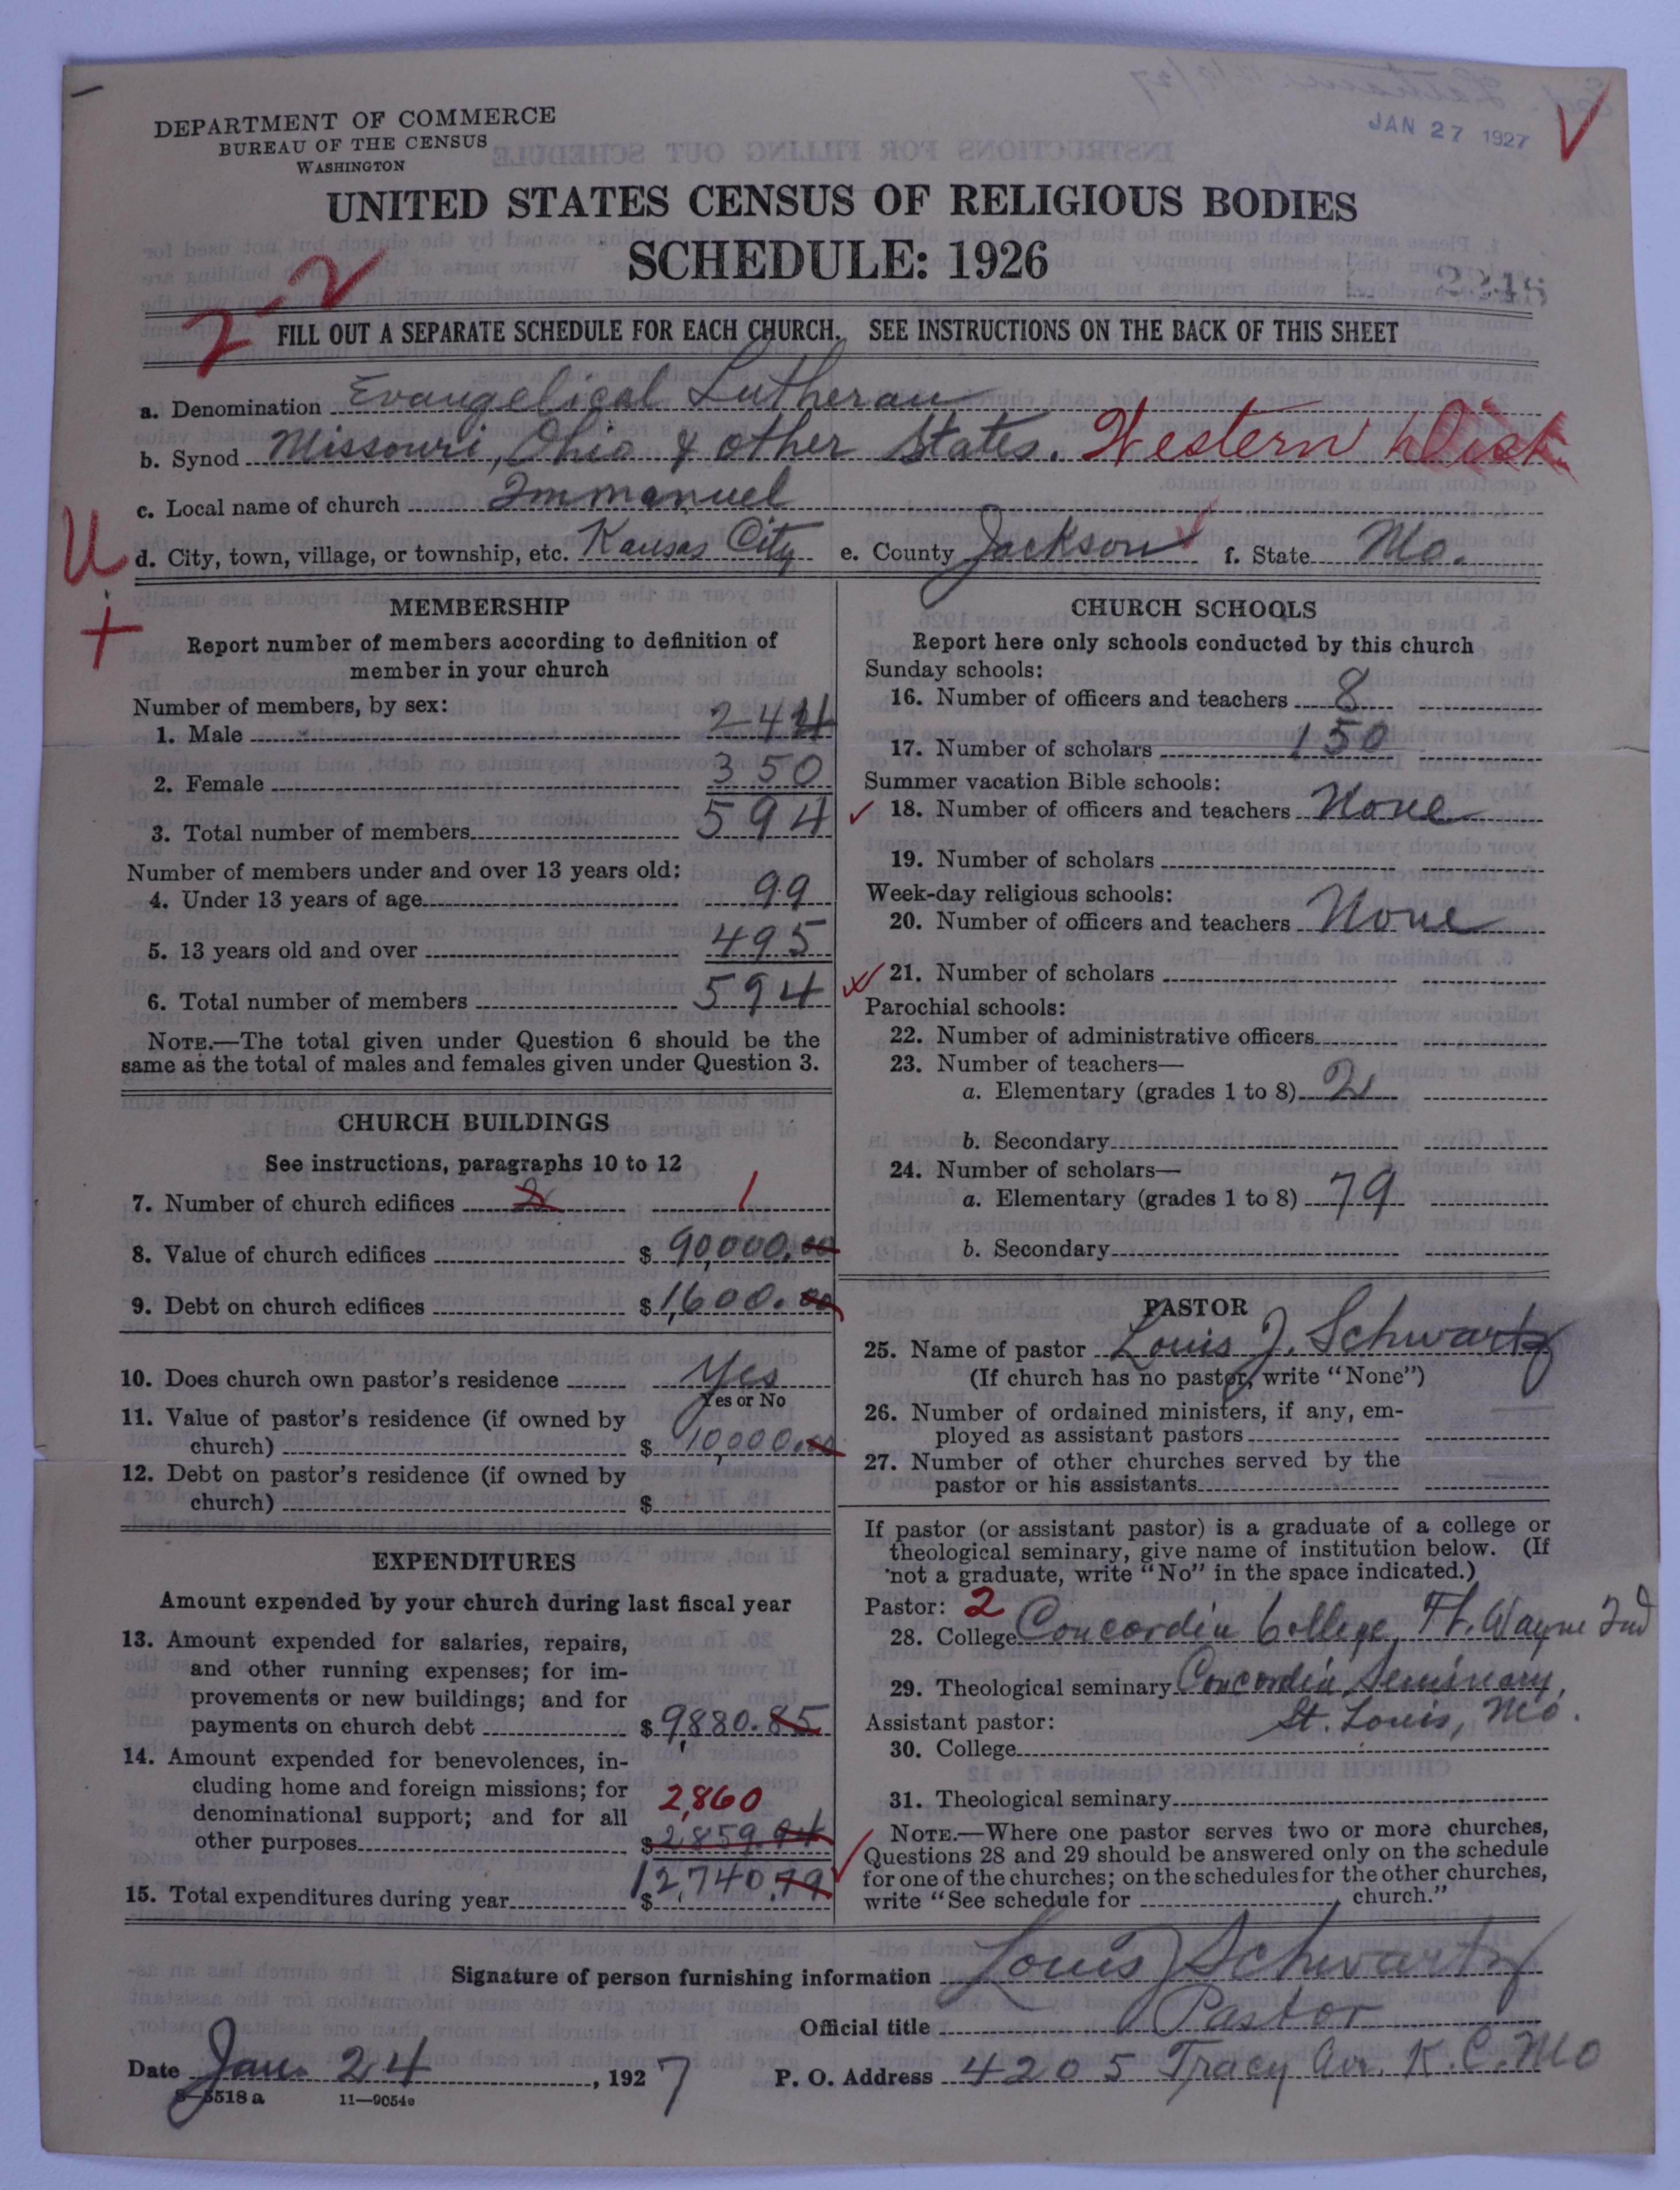 JAN 27 1927
DEPARTMENT OF COMMERCE
BUREAU OF THE CENSUS
WASHINGTON
UNITED STATES CENSUS OF RELIGIOUS BODIES
SCHEDULE: 1926
2-2
FILL OUT A SEPARATE SCHEDULE FOR EACH CHURCH. SEE INSTRUCTIONS ON THE BACK OF THIS SHEET
a. Denomination Evangelical Lutheran
b. Synod Missouri, Ohio & other States. Western Dist.
c. Local name of church Immanuel
U d. City, town, village, or township, etc. Kansas City e. County Jackson f. State Mo.
+
MEMBERSHIP
Report number of members according to definition of
member in your church
Number of members, by sex:
1. Male 244
2. Female 350
3. Total number of members 594
Number of members under and over 13 years old:
4. Under 13 years of age 99
5. 13 years old and over 495
6. Total number of members 594
NOTE.—The total given under Question 6 should be the
same as the total of males and females given under Question 3.
CHURCH BUILDINGS
See instructions, paragraphs 10 to 12
7. Number of church edifices 2 1
8. Value of church edifices $ 90,000.00
9. Debt on church edifices $ 1,600.00
10. Does church own pastor's residence Yes
Yes or No
11. Value of pastor's residence (if owned by
church) $ 10,000.00
12. Debt on pastor's residence (if owned by
church) $
EXPENDITURES
Amount expended by your church during last fiscal year
13. Amount expended for salaries, repairs,
and other running expenses; for im-
provements or new buildings; and for
payments on church debt $ 9,880.85
14. Amount expended for benevolences, in-
cluding home and foreign missions; for
denominational support; and for all 2,860
other purposes $ 2859.94
15. Total expenditures during year $ 12,740.79
CHURCH SCHOOLS
Report here only schools conducted by this church
Sunday schools:
16. Number of officers and teachers 8
17. Number of scholars 150
Summer vacation Bible schools:
18. Number of officers and teachers None
19. Number of scholars
Week-day religious schools:
20. Number of officers and teachers None
21. Number of scholars
Parochial schools:
22. Number of administrative officers
23. Number of teachers—
a. Elementary (grades 1 to 8) 2
b. Secondary
24. Number of scholars—
a. Elementary (grades 1 to 8) 79
b. Secondary
PASTOR
25. Name of pastor Louis J. Schwartz
(If church has no pastor, write "None")
26. Number of ordained ministers, if any, em-
ployed as assistant pastors
27. Number of other churches served by the
pastor or his assistants
If pastor (or assistant pastor) is a graduate of a college or
theological seminary, give name of institution below. (If
not a graduate, write "No" in the space indicated.)
Pastor: 2
28. College Concordia College, Ft. Wayne Ind
29. Theological seminary Concordia Seminary,
Assistant pastor: St. Louis, Mo.
30. College
31. Theological seminary
NOTE.—Where one pastor serves two or more churches,
Questions 28 and 29 should be answered only on the schedule
for one of the churches; on the schedules for the other churches,
write "See schedule for church."
Signature of person furnishing information Louis J Schwartz
Official title Pastor
Date Jan. 24, 1927 P. O. Address 4205 Tracy Av. K.C. Mo
8—5518 a 11—9054a